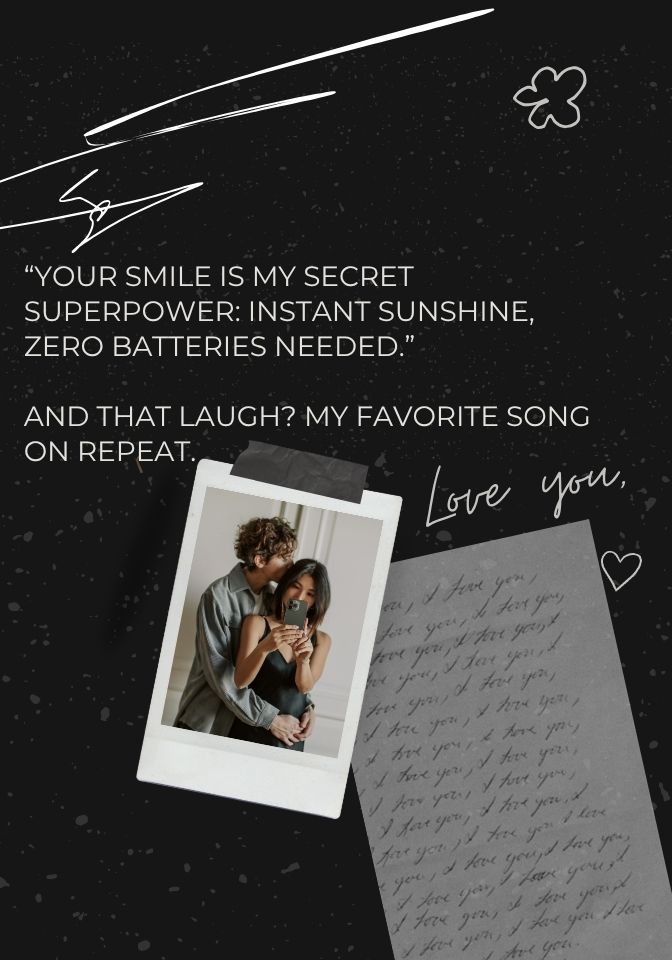 “YOUR SMILE IS MY SECRET
SUPERPOWER: INSTANT SUNSHINE,
ZERO BATTERIES NEEDED.”
AND THAT LAUGH? MY FAVORITE SONG
ON REPEAT.
Love you,
ou, I love you,
love you, I love you,
love you, I love you, I
you, I love you, I
love you, I love you,
I love you, I love you,
I love you, I love you,
I love you, I love you,
I love you, I love you,
I love you, I love you, I
love you, I love you I love
you, I love you, I love you,
I love you, I love you, I
I love you, I love you, I
I love you, I love you I love
I love you.